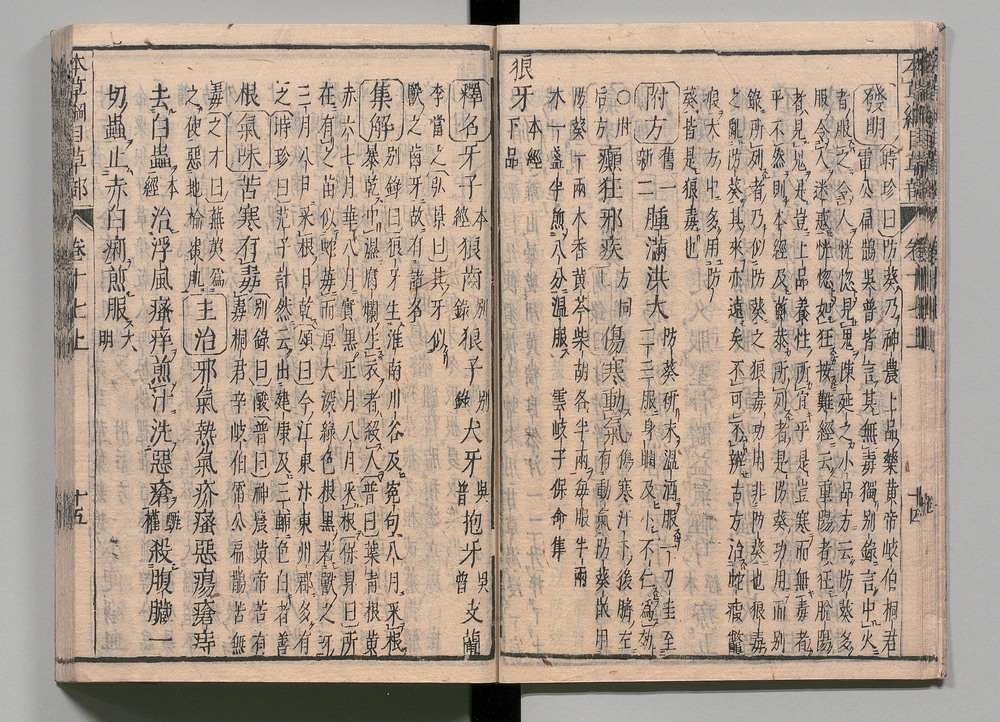 本草綱目草部 卷十七上 十四
發明 時珍曰防葵乃神農上品藥黃帝岐伯桐君
雷公扁鵲吳普皆言其無毒獨別錄言中火
者服之令人恍惚見鬼陳延之小品方云防葵多
服令人迷惑恍惚如狂按難經云重陽者狂脫陽
者見鬼是豈上品養性所宜乎是豈寒而無毒者
乎不然則本經及蘇恭所列者是防葵功用而別
錄所列者乃似防葵之狼毒功用非防葵也狼毒
之亂防葵其來亦遠矣不可不辨古方治蛇瘕鱉
瘕大方中多用防
葵皆是狼毒也
附方 舊一新二 腫滿洪大 防葵研末溫酒服一刀圭至二三服身瞤及小不仁爲效
○肘后方 癲狂邪疾 方同上 傷寒動氣 傷寒汗下後臍左有動氣防葵散用
防葵一兩木香黃芩柴胡各半兩每服半兩
水一盞半煎八分溫服 雲岐子保命集
狼牙 本經下品
釋名 牙子 本經 狼齒 別錄 狼子 別錄 犬牙 吳普 抱牙 吳普 支蘭
李當之 弘景曰其牙似
獸之齒牙故有諸名
集解 別錄曰狼牙生淮南川谷及冤句八月采根
暴乾中濕腐爛生衣者殺人普曰葉青根黃
赤六七月華八月實黑正月八月采根保昇曰所
在有之苗似蛇莓而厚大深綠色根黑若獸之牙
三月八月采根日乾頌曰今江東汴東州郡多有
之時珍曰范子計然云出建康及三輔色白者善
根 氣味 苦寒有毒 別錄曰酸普曰神農黃帝苦有毒桐君辛岐伯雷公扁鵲苦無
毒之才曰蕪荑爲之使惡地榆棗肌 主治 邪氣熱氣疥瘙惡瘍瘡痔
去白蟲 本經 治浮風瘙痒煎汁洗惡瘡 甄權 殺腹臟一
切蟲止赤白痢煎服 大明
本草綱目草部 卷十七上 十五